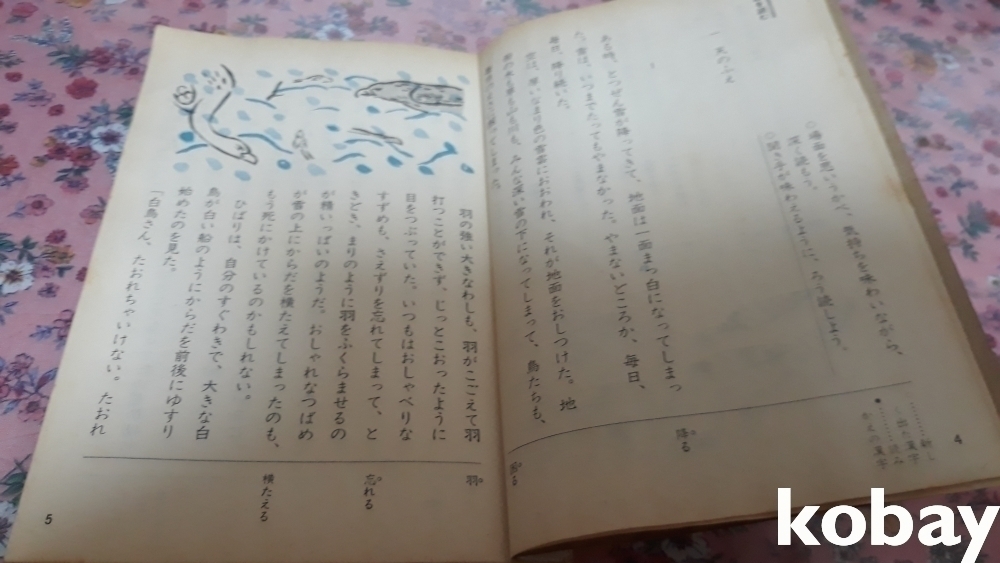 一 天のふえ
○場面を思いうかべ、気持ちを味わいながら、
深く読もう。
○聞き手が味わえるように、ろう読しよう。
ある時、とつぜん雪が降ってきて、地面は一面まっ白になってしまっ
た。雪は、いつまでたってもやまなかった。やまないどころか、毎日、
毎日、降り続いた。
空は、厚いなまり色の雪雲におおわれ、それが地面をおしつけた。地
面の木も草も山も川も、みんな深い雪の下になってしまって、鳥たちも、
降る
新し
読み
かえの漢字
4
羽の強い大きなわしも、羽がこごえて羽
打つことができず、じっとこおったように
目をつぶっていた。いつもはおしゃべりな
すずめも、さえずりを忘れてしまって、と
きどき、まりのように羽をふくらませるの
が精いっぱいのようだ。おしゃれなつばめ
が雪の上にからだを横たえてしまったのも、
もう死にかけているのかもしれない。
ひばりは、自分のすぐわきで、大きな白
鳥が白い船のようにからだを前後にゆすり
始めたのを見た。
「白鳥さん。たおれちゃいけない。たおれ
羽
忘れる
横たえる
5
kobay